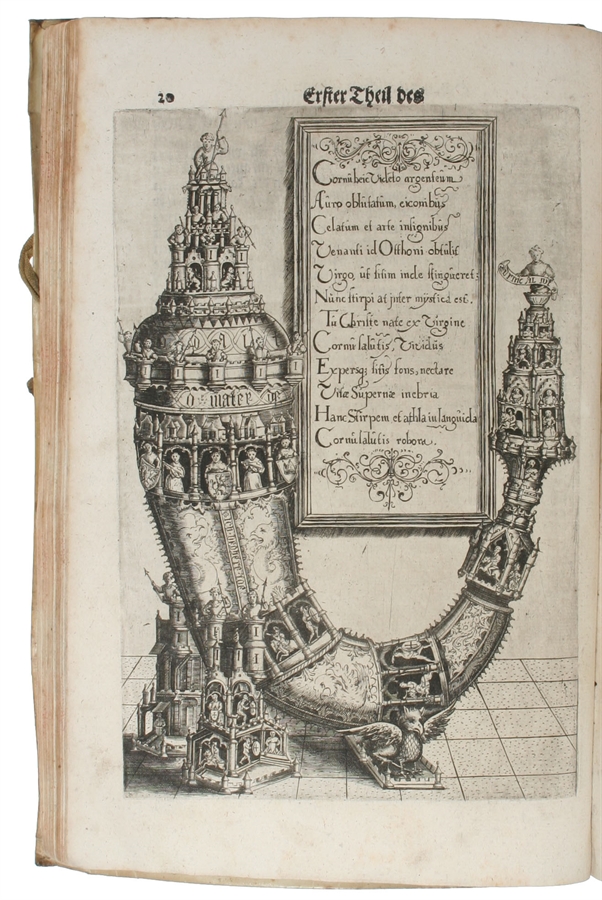 20
Erster Theil des
Cornu heic Videto argenteum
Auro oblitatum, eiconibus
Celatum et arte insignibus
Venanti id Otthoni obtulit
Virgo, ut sitim inde stingueret:
Nunc stirpi at inter mystica est.
Tu Christe nate ex Virgine
Cornu salutis, Vividus
Expersq; finis fons, nectare
Vitæ Supernæ inebria
Hanc Stirpem et athla in languida
Cornu salutis robora.
o mater de